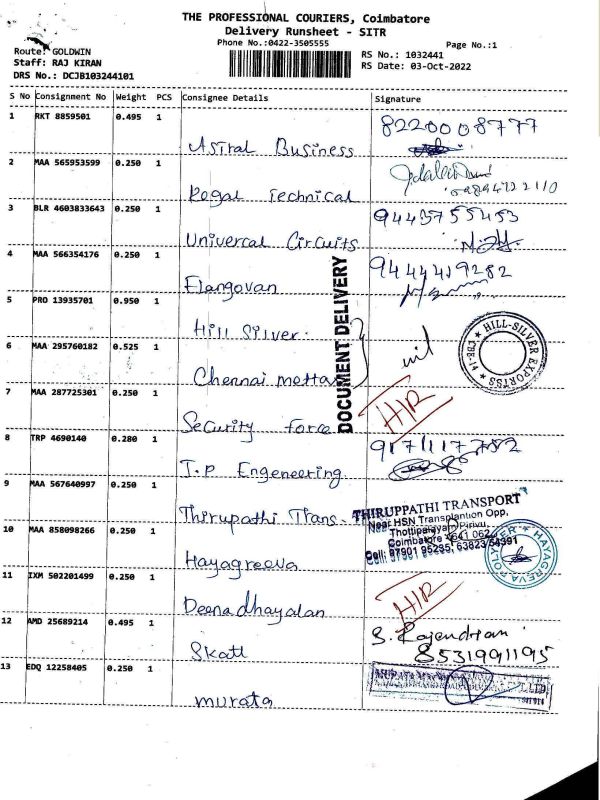 THE PROFESSIONAL COURIERS, Coimbatore
Delivery Runsheet - SITR
Phone No.:0422-3505555
Page No.:1
Route: GOLDWIN
Staff: RAJ KIRAN
DRS No.: DCJB103244101
RS No.: 1032441
RS Date: 03-Oct-2022
S No Consignment No Weight PCS Consignee Details Signature
1 RKT 8859501 0.495 1 Astral Business 8220008777
2 MAA 565953599 0.250 1 Regal Technical
3 BLR 4603833643 0.250 1 Univercal Circuits 9443755453
4 MAA 566354176 0.250 1 Elangovan 9444419282
5 PRO 13935701 0.950 1 Hill Silver.
6 MAA 295760182 0.525 1 Chennai mettas nil
7 MAA 287725301 0.250 1 Security force HIR
8 TRP 4690140 0.280 1 J.p Engeneering 9171117782
9 MAA 567640997 0.250 1 Thirupathi Trans-
10 MAA 858098266 0.250 1 Hayagreeva
11 IXM 502201499 0.250 1 Deenadhayalan HIR
12 AMD 25689214 0.495 1 Skatt S. Rajendran
8531991195
13 EDQ 12258405 0.250 1 murata
DOCUMENT DELIVERY
HILL-SILVER EXPORTSS
CBE-14
THIRUPPATHI TRANSPORT
Near HSN Transplantion Opp,
Thottipalayam Pirivu,
Coimbatore - 641 062
Cell: 97901 95295, 63823 54391
HAYAGREVA POLYMER